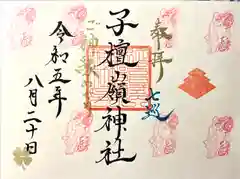 奉拝
七巡
子檀嶺神社
令和五年
八月二十日